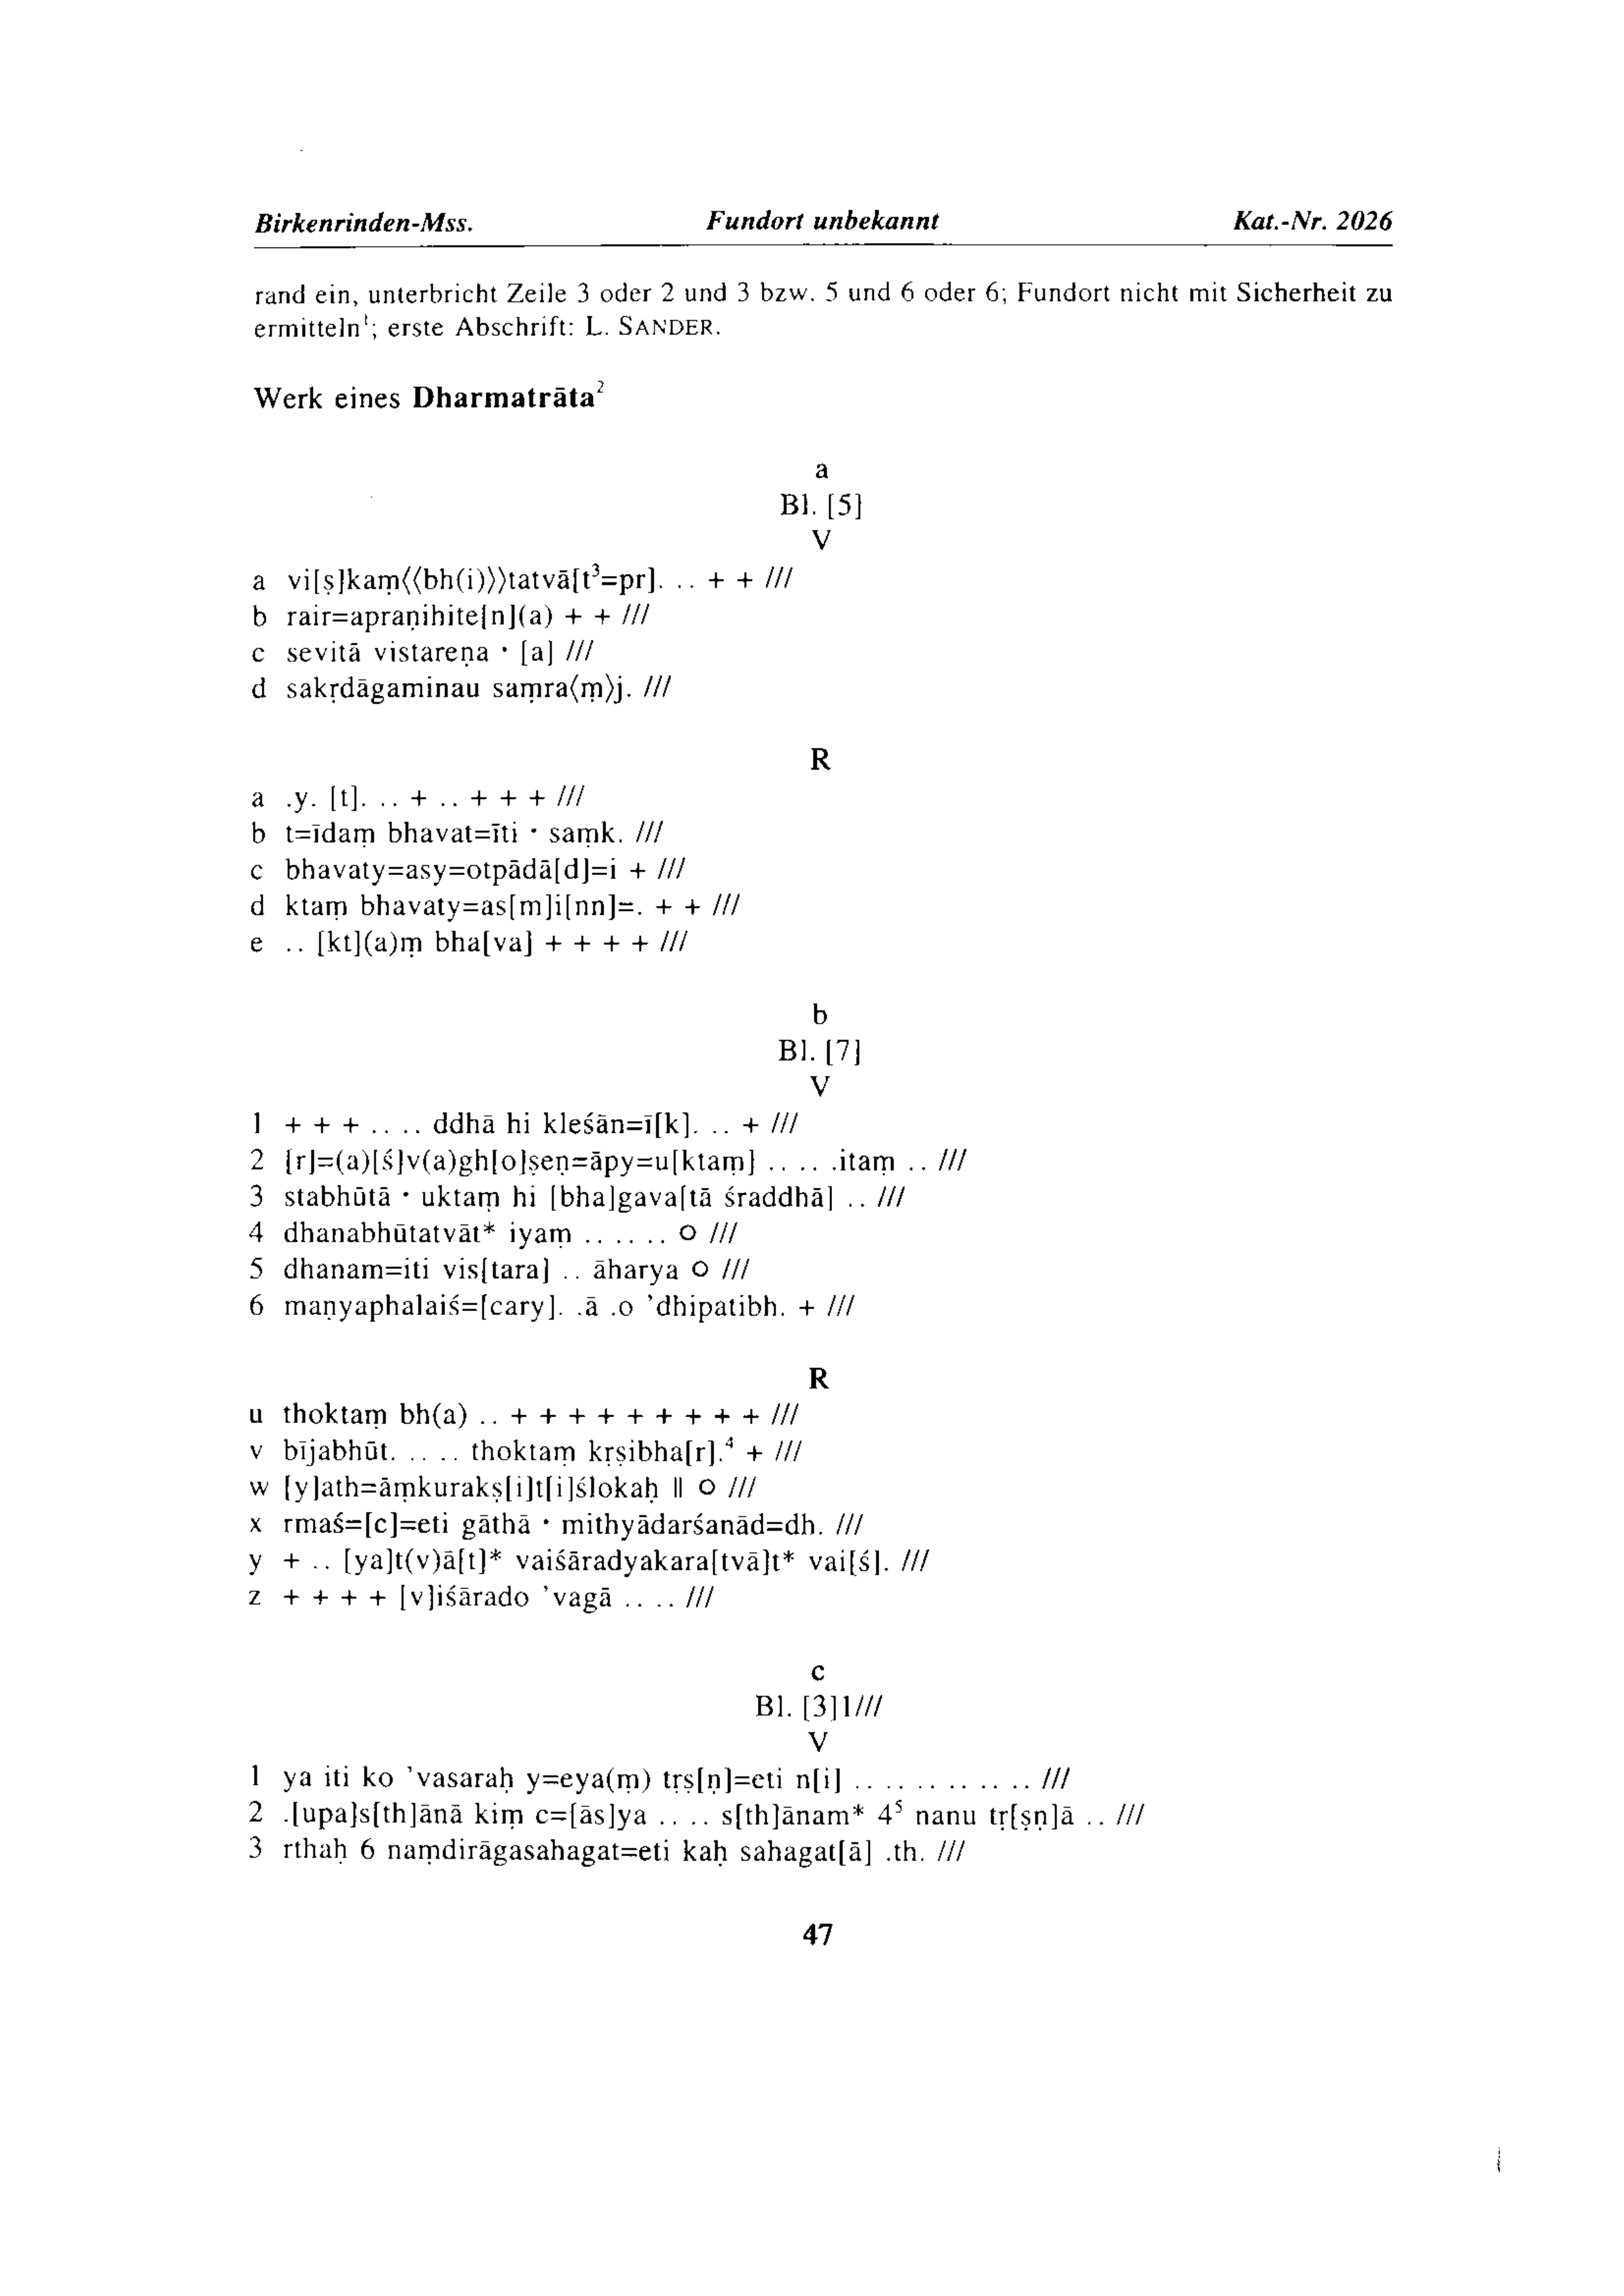 Birkenrinden-Mss. Fundort unbekannt Kat.-Nr. 2026
rand ein, unterbricht Zeile 3 oder 2 und 3 bzw. 5 und 6 oder 6; Fundort nicht mit Sicherheit zu
ermitteln¹; erste Abschrift: L. SANDER.
Werk eines Dharmatrāta²
a
Bl. [5]
V
a vi[ṣ]kaṃ⟨⟨bh(i)⟩⟩tatvā[t³=pr]. .. + + ///
b rair=apraṇihite[n](a) + + ///
c sevitā vistareṇa · [a] ///
d sakṛdāgaminau saṃra⟨ṃ⟩j. ///
R
a .y. [t]. .. + .. + + + ///
b t=īdaṃ bhavat=īti · saṃk. ///
c bhavaty=asy=otpādā[d]=i + ///
d ktaṃ bhavaty=as[m]i[nn]=. + + ///
e .. [kt](a)ṃ bha[va] + + + + ///
b
Bl. [7]
V
1 + + + .. .. ddhā hi kleśān=ī[k]. .. + ///
2 [r]=(a)[ś]v(a)gh[o]ṣeṇ=āpy=u[ktaṃ] .. .. .itaṃ .. ///
3 stabhūtā · uktaṃ hi [bha]gava[tā śraddhā] .. ///
4 dhanabhūtatvāt* iyaṃ .. .. .. ○ ///
5 dhanam=iti vis[tara] .. āharya ○ ///
6 maṇyaphalaiś=[cary]. .ā .o ’dhipatibh. + ///
R
u thoktaṃ bh(a) .. + + + + + + + + + ///
v bījabhūt. .. .. thoktaṃ kṛṣibha[r].⁴ + ///
w [y]ath=āṃkurakṣ[i]t[i]ślokaḥ ‖ ○ ///
x rmaś=[c]=eti gāthā · mithyādarśanād=dh. ///
y + .. [ya]t(v)ā[t]* vaiśāradyakara[tvā]t* vai[ś]. ///
z + + + + [v]iśārado ’vagā .. .. ///
c
Bl. [3]1///
V
1 ya iti ko ’vasaraḥ y=eya(ṃ) tṛṣ[ṇ]=eti n[i] .. .. .. .. .. .. ///
2 .[upa]s[th]ānā kiṃ c=[ās]ya .. .. s[th]ānam* 4⁵ nanu tṛ[ṣṇ]ā .. ///
3 rthaḥ 6 naṃdirāgasahagat=eti kaḥ sahagat[ā] .th. ///
47